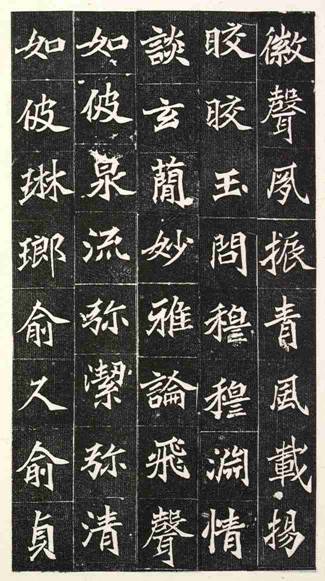 徽聲夙振青風載揚
晈晈玉問穆穆淵情
談玄簡妙雅論飛聲
如彼泉流弥潔弥清
如彼琳瑯俞久俞貞